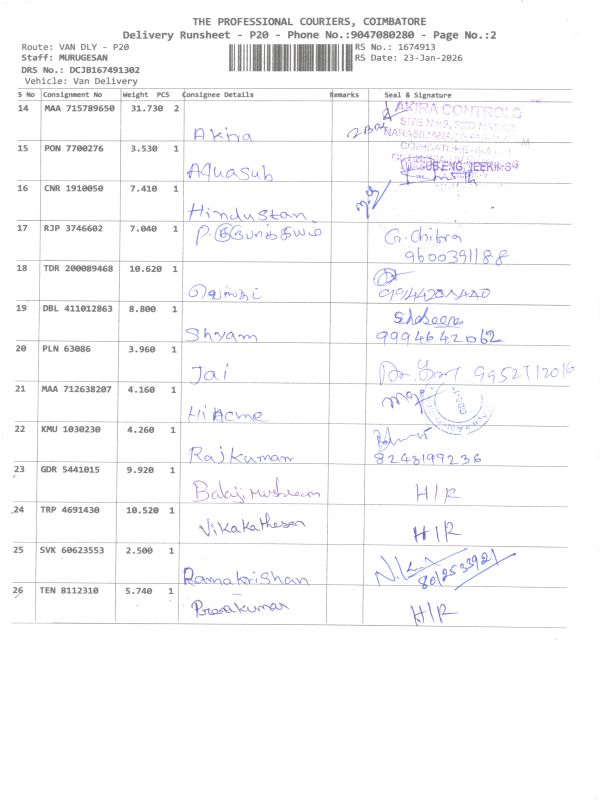 THE PROFESSIONAL COURIERS, COIMBATORE
Delivery Runsheet - P20 - Phone No.:9047080280 - Page No.:2
Route: VAN DLY - P20 RS No.: 1674913
Staff: MURUGESAN RS Date: 23-Jan-2026
DRS No.: DCJB167491302
Vehicle: Van Delivery
S No Consignment No Weight PCS Consignee Details Remarks Seal & Signature
14 MAA 715789650 31.730 2 Akira AKIRA CONTROLS
15 PON 7700276 3.530 1 Aquasub
16 CNR 1910050 7.410 1 Hindustan
17 RJP 3746602 7.040 1 G. Chitra
9600391188
18 TDR 200089468 10.620 1
19 DBL 411012863 8.800 1 Shyam
9994642062
20 PLN 63086 3.960 1 Jai 9952712016
21 MAA 712638207 4.160 1 Hi Acme
22 KMU 1030230 4.260 1 Rajkumar
8248199236
23 GDR 5441015 9.920 1 Balaji H/R
24 TRP 4691430 10.520 1 H/R
25 SVK 60623553 2.500 1 Ramakrishan
8012533921
26 TEN 8112310 5.740 1 H/R